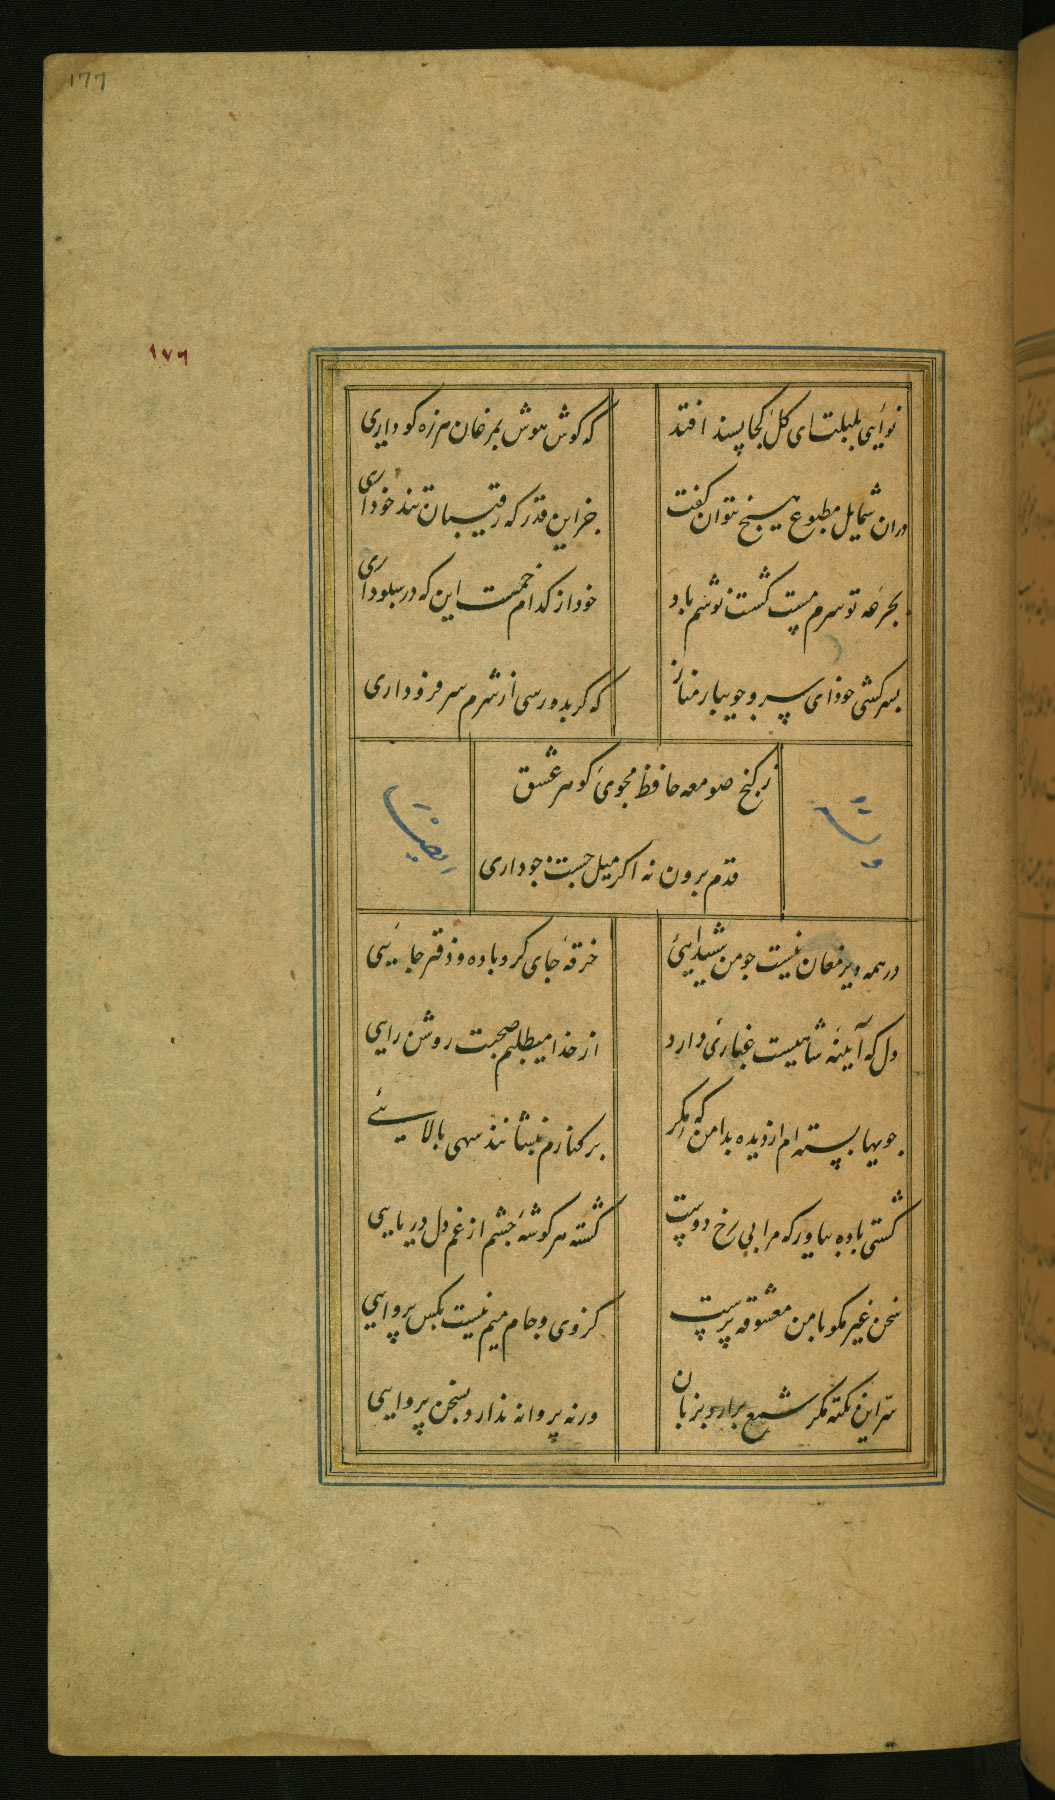 ۱۷۷
۱۷۶
نوای بلبلت ای کل کجا پسند افتد
که کوش هوش بمرغان هرزه کو داری
دران شمایل مطبوع هیچ نتوان کفت
جز این قدر که رقیبان تند خو داری
بجرعه تو سرم مست کشت نوشم باد
خود از کدام خمست این که در سبو داری
بسرکشی خود ای سرو جویبار مناز
که کر بدو رسی از شرم سر فرو داری
ز کنج صومعه حافظ مجوی کوهر عشق
قدم برون نه اکر میل جست جو داری
وله
ایضا
در همه دیر مغان نیست جو من شیدایی
خرقه جای کرو باده و دفتر جایی
دل که آیینه شاهیست غباری دارد
از خدا میطلبم صحبت روشن رایی
جویها بسته ام از دیده بدامن که مکر
بر کنارم بنشانند سهی بالایی
کشتی باده بیاور که مرا بی رخ دوست
کشته هر کوشه جشم از غم دل دریایی
سخن غیر مکو با من معشوقه پرست
کز وی و جام میم نیست بکس پروایی
سر این نکته مکر شمع برارد بزبان
ورنه پروانه ندارد بسخن پروایی